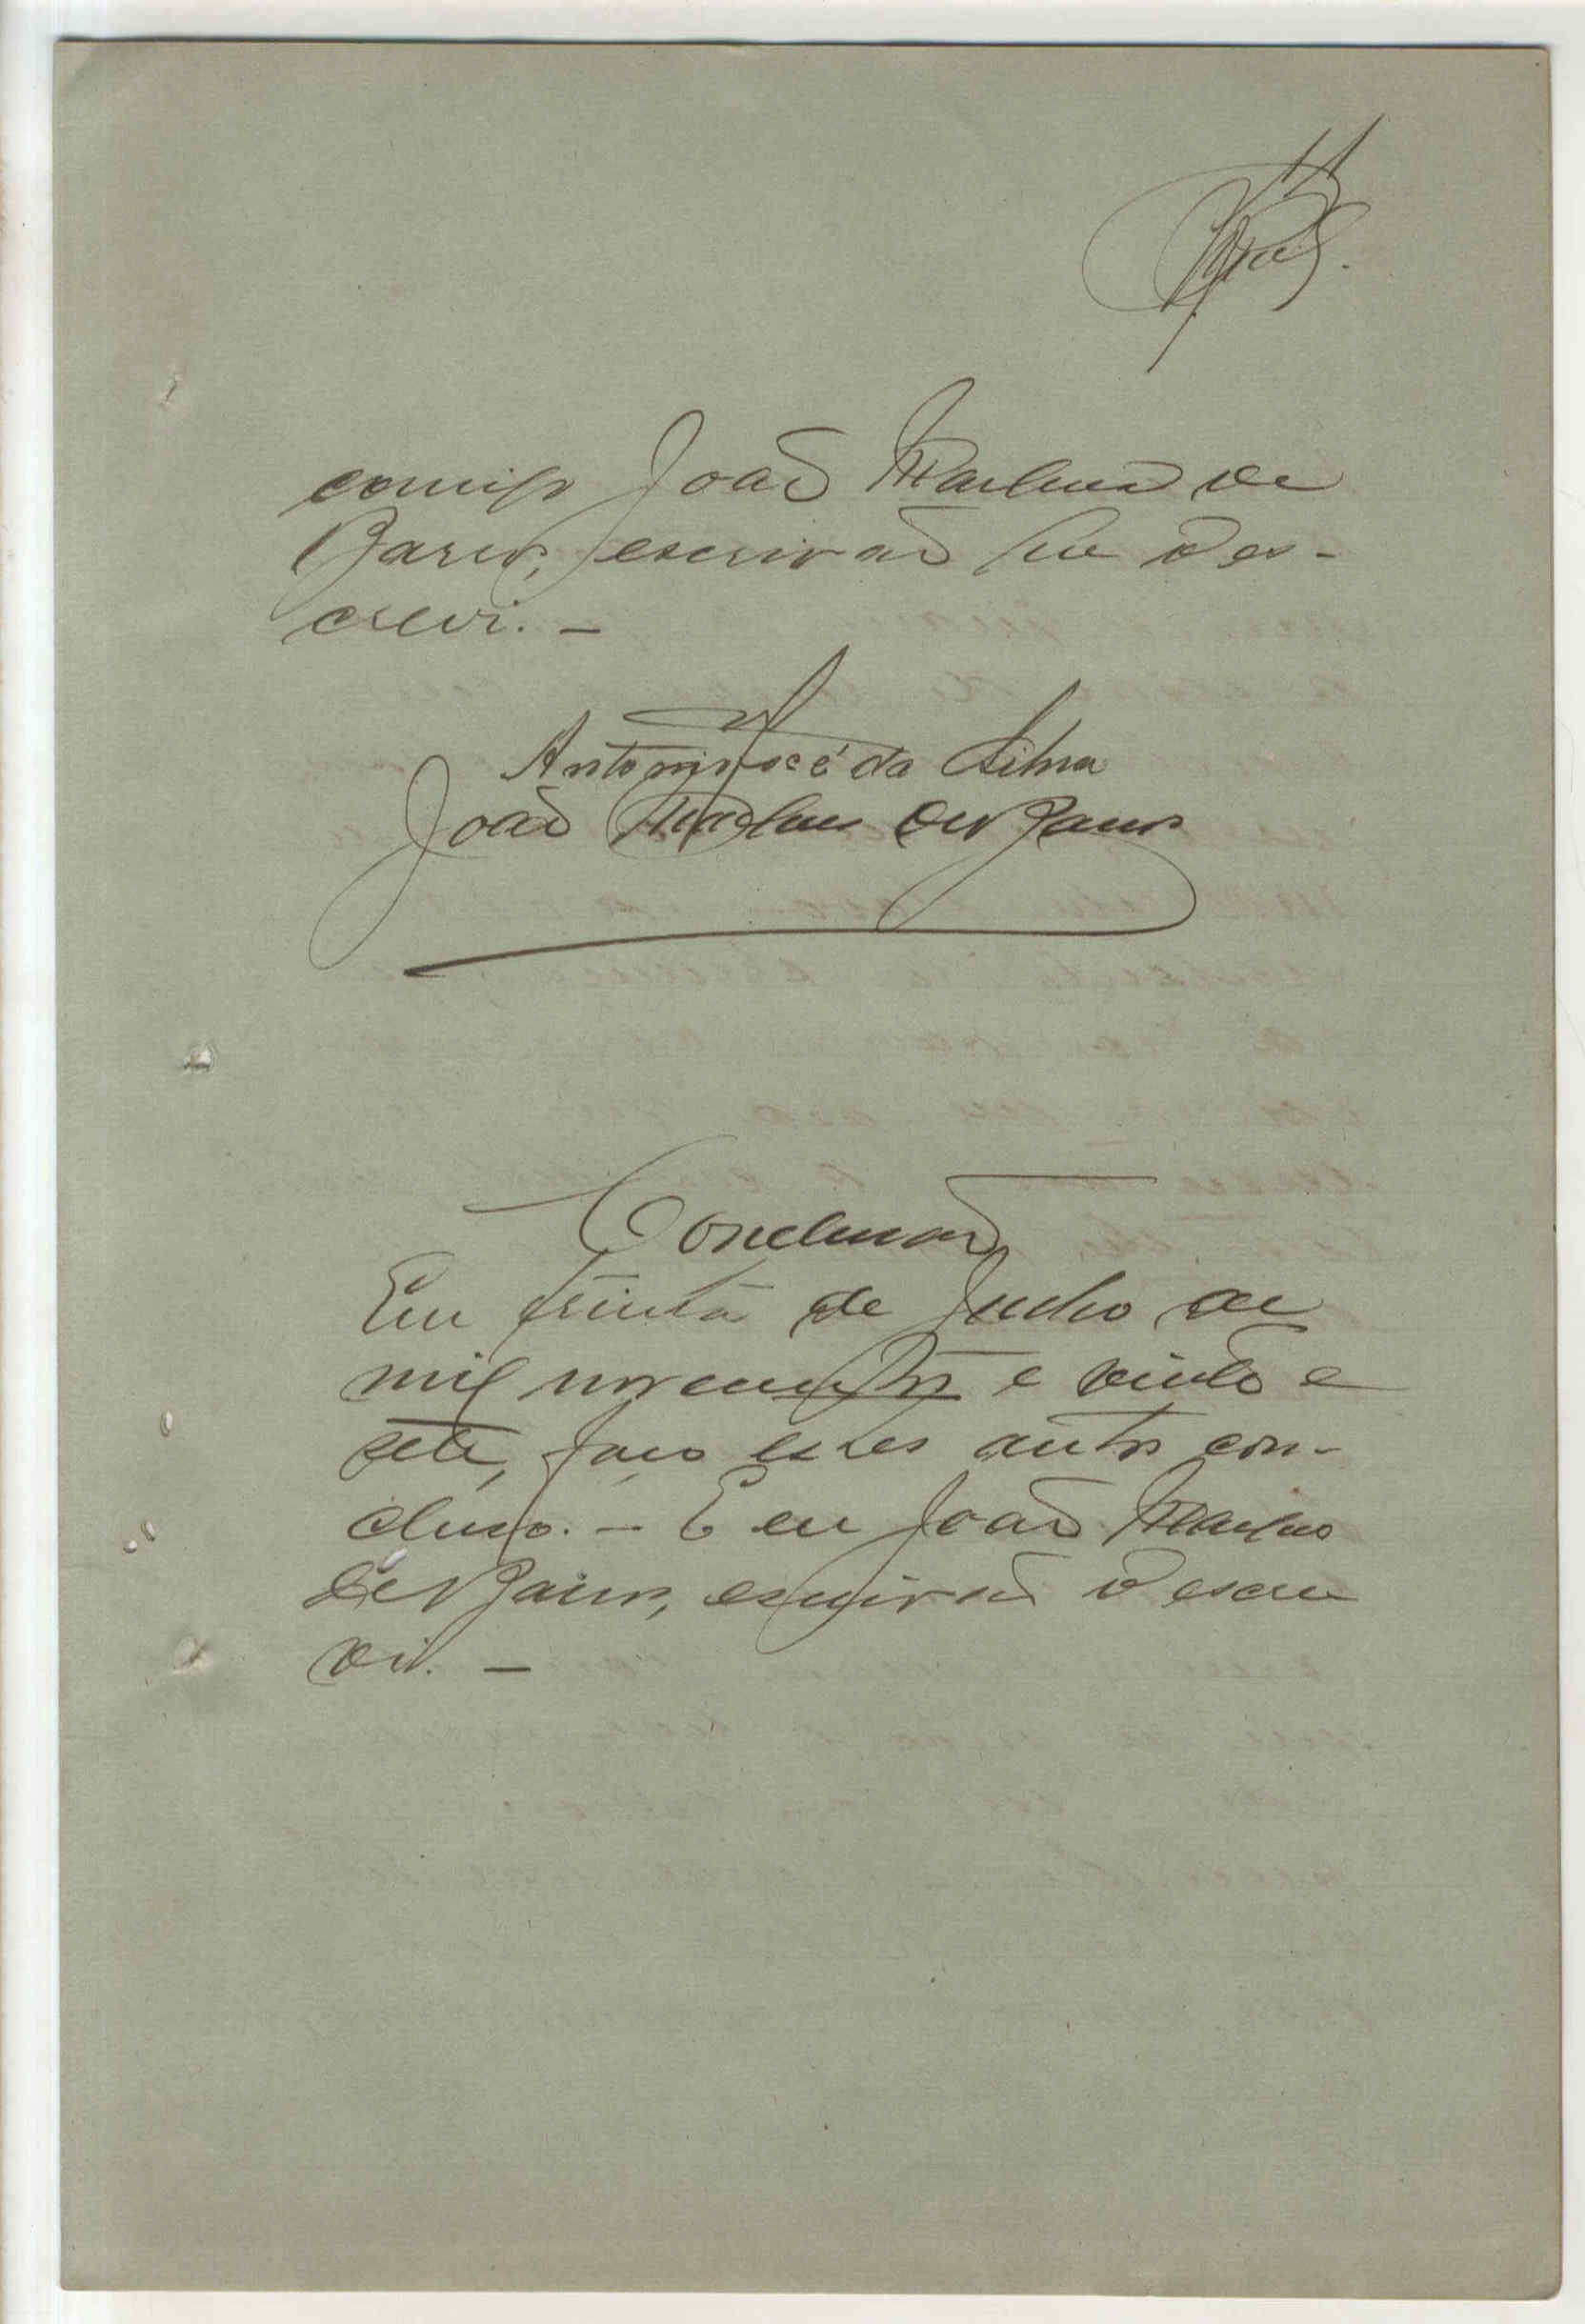 11
comigo João Martins de
Barros, escrivão que o es-
crevi. —
Antonio José da Silva
João Martins de Barros
Conclusão
Em trinta de Junho de
mil novecentos e vinte e
sete, faço estes autos con-
cluso. — E eu João Martins
de Barros, escrivão o escre
vi. —